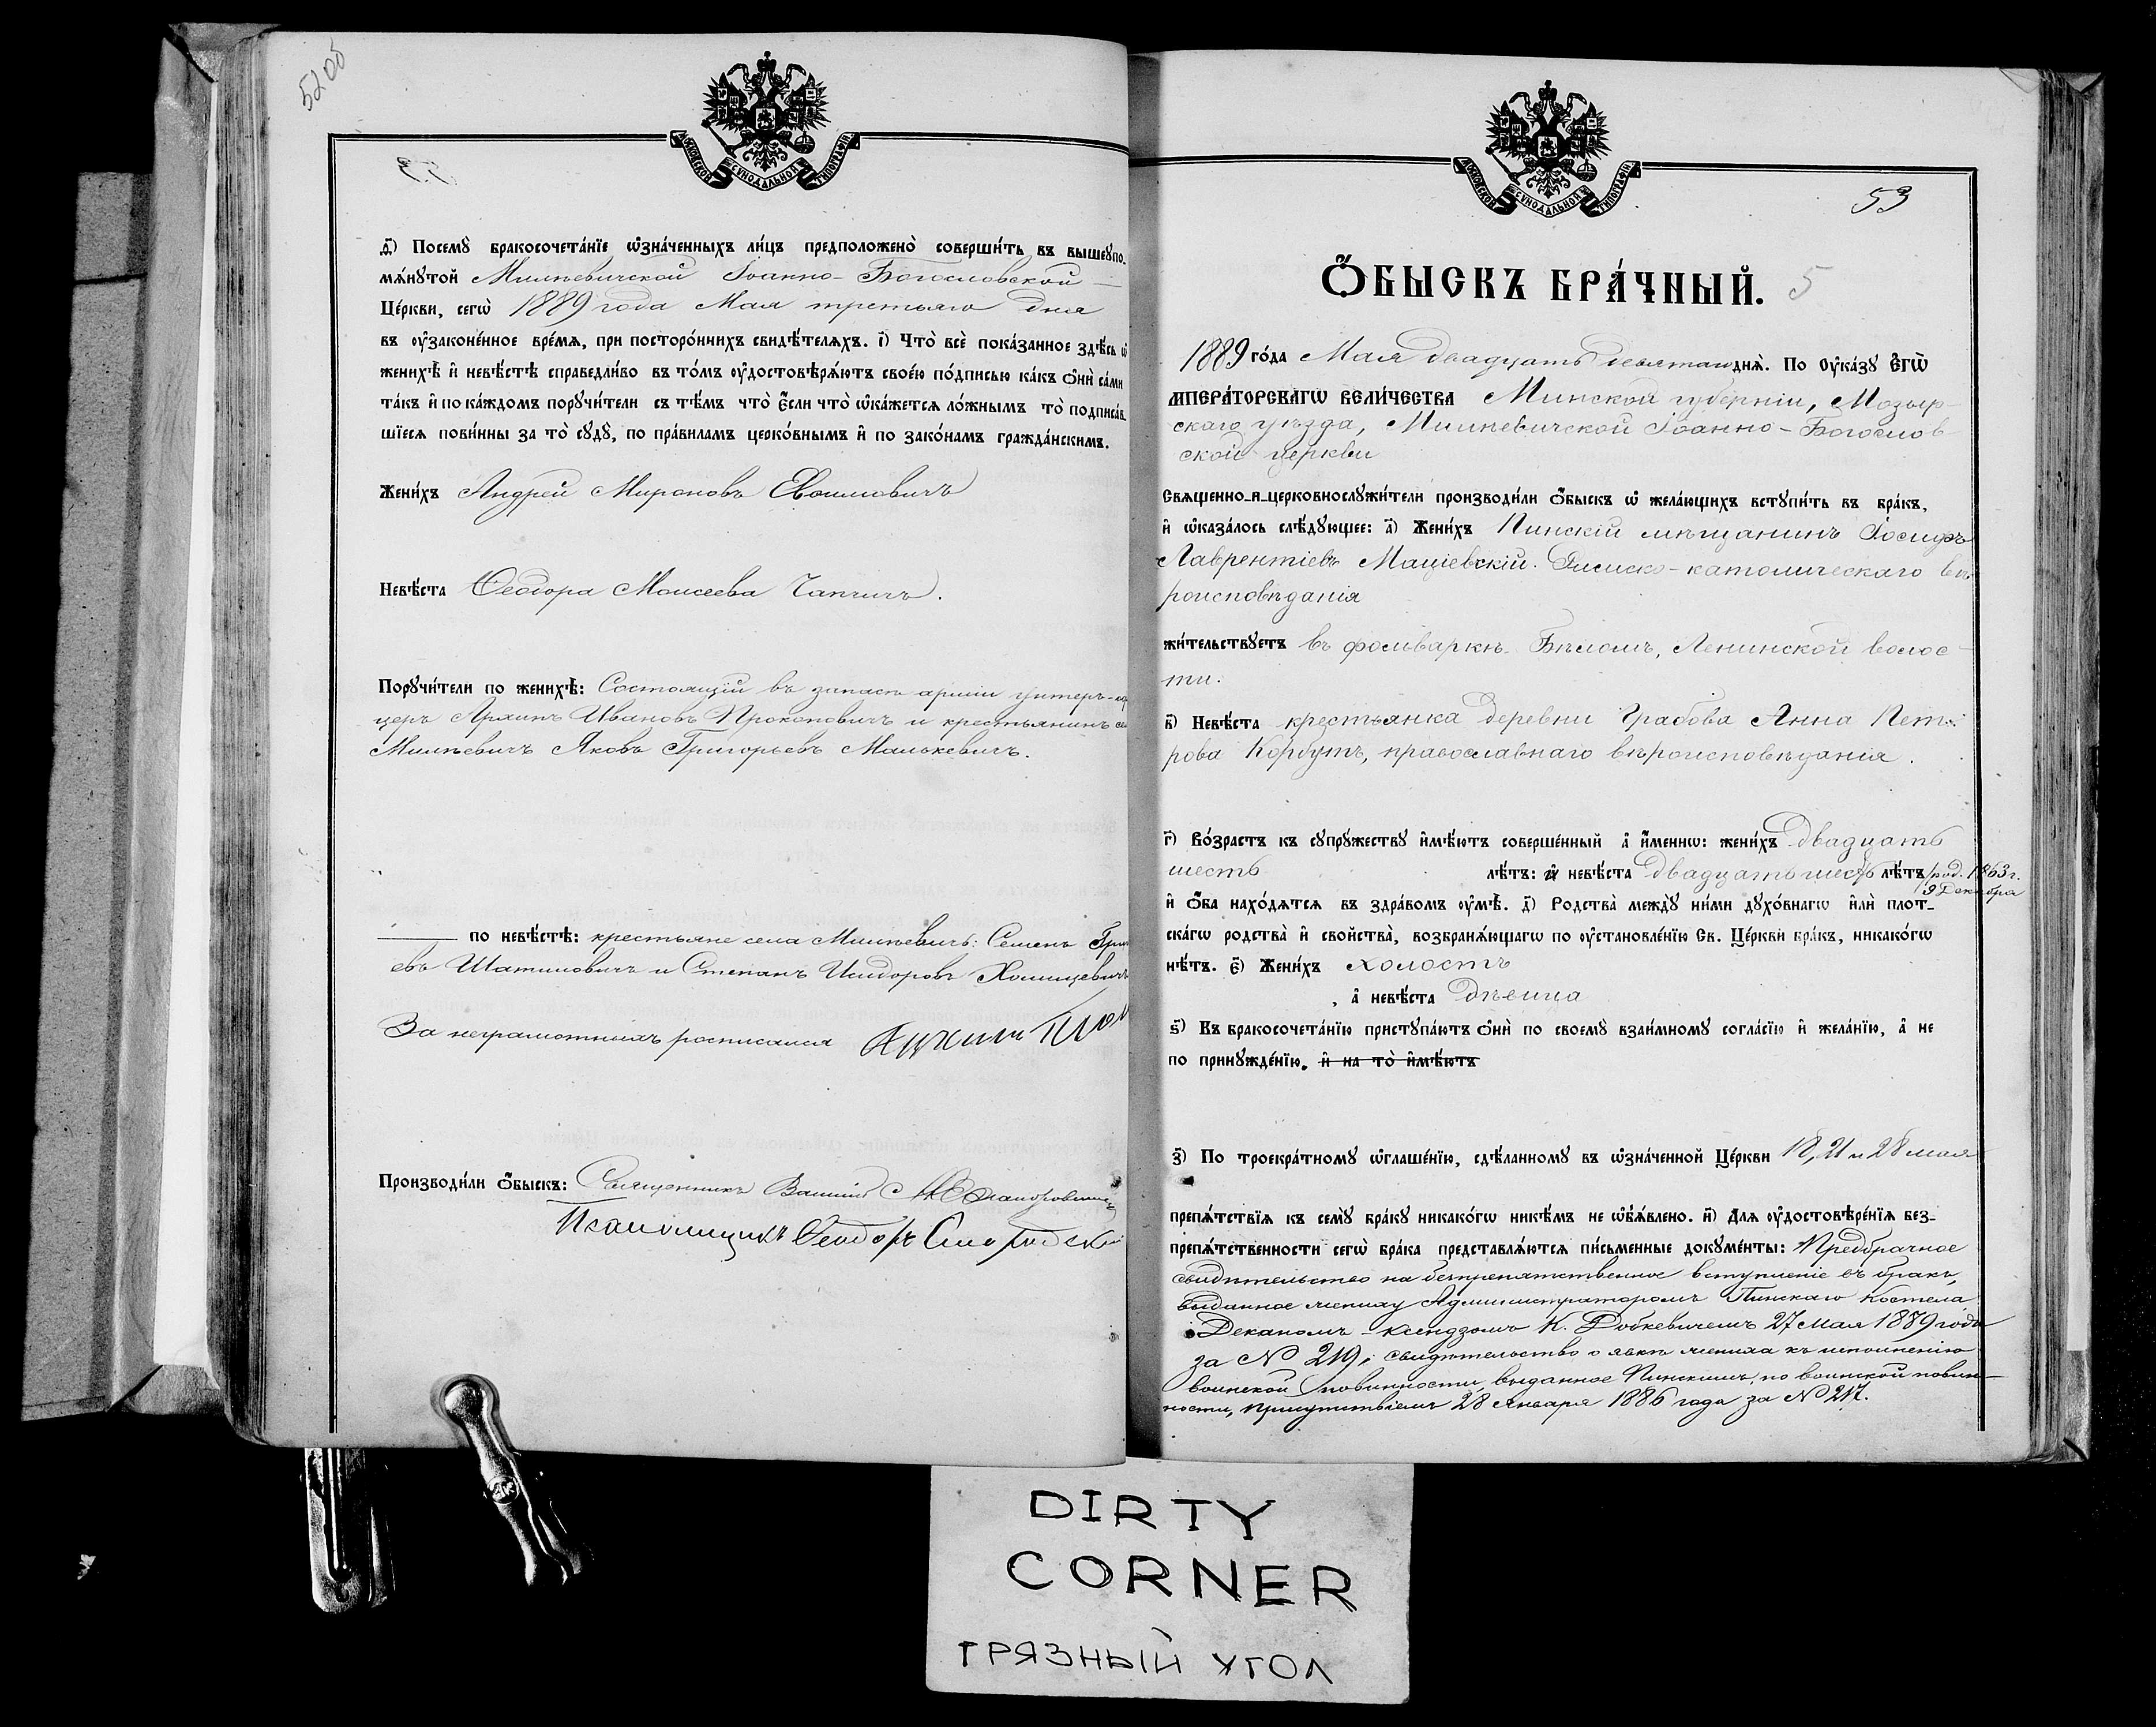 52 об
МОСКОВСКОЙ СѴНОДАЛЬНОЙ ТИПОГРАФІИ
д҃) Посемꙋ̀ бракосочета́нїе ѡ҆зна́ченныхъ ли́цъ предположено̀ соверши́ть въ вышеꙋпо-
мѧ́нꙋтой Милѣвичской Іоанно-Богословской
Це́ркви, сегѡ̀ 1889 года Мая третьяго дня
въ ᲂу҆зако́ненное вре́мѧ, при посторо́ннихъ свидѣ́телѧхъ. і҃) Что̀ всѐ пока́занное здѣ́сь ѡ҆
женихѣ̀ и҆ невѣ́стѣ справедли́во въ то́мъ ᲂу҆достовѣрѧ́ютъ свое́ю по́дписью ка́къ ѻ҆нѝ са́ми
та́къ и҆ по ка́ждомъ порꙋчи́тели съ тѣ́мъ что̀ є҆́сли что̀ ѡ҆ка́жетсѧ ло́жнымъ то̀ подписа́в-
шїесѧ пови́нны за то̀ сꙋдꙋ̀, по пра́виламъ церко́внымъ и҆ по зако́намъ гражда́нскимъ.
Жени́хъ Андрей Мироновъ
Невѣ́ста Ѳеодора Моисеева Чапличъ.
Порꙋчи́тели по женихѣ̀: Состоящій въ запасѣ арміи унтеръ-
церъ Архипъ Ивановъ Прокоповичъ и крестьянинъ
Милѣвичъ Яковъ Григорьевъ Малькевичъ.
по невѣ́стѣ: крестьяне села Милѣвичъ: Семенъ
евъ Шатиловичъ и Степанъ Исидоровъ
За неграмотныхъ росписался
Производи́ли ѻ҆́быскъ: Священникъ
Псаломщикъ Ѳеодоръ
МОСКОВСКОЙ СѴНОДАЛЬНОЙ ТИПОГРАФІИ
53
Ѻ҆БЫСКЪ БРА́ЧНЫЙ. 5
1889 го́да Мая двадцать девятаго днѧ̀. По ᲂу҆ка́зꙋ Є҆ГѠ̀
ИМПЕРА́ТОРСКАГѠ ВЕЛИ́ЧЕСТВА Минской губерніи, Мозыр-
скаго уѣзда, Милевичской Іоанно-Богослов-
ской церкви
Свѧщенно-и-церковнослꙋжи́тели производи́ли ѻ҆́быскъ ѡ҆ жела́ющихъ встꙋпи́ть въ бра́къ,
и҆ ѡ҆каза́лось слѣ́дꙋющее: а҃) Жени́хъ Пинскій мѣщанинъ Іосифъ
Лаврентіевъ Маціевскій. Римско-католическаго вѣ-
роисповѣданія
жи́тельствꙋетъ въ фольваркѣ Бѣломъ, Ленинской волос-
ти.
в҃) Невѣ́ста крестьянка деревни Грабова Анна Пет-
рова Корбутъ, православнаго вѣроисповѣданія.
г҃) Во́зрастъ къ сꙋпрꙋжествꙋ и҆мѣ́ютъ соверше́нный а҆̀ и҆́меннѡ: жени́хъ Двадцать
шесть лѣ́тъ: и҆̀ невѣ́ста Двадцать шесть лѣ́тъ /род. 1863 г.
9 Декабря
и҆ ѻ҆́ба нахо́дѧтсѧ въ здра́вомъ ᲂу҆мѣ̀. д҃) Родства̀ междꙋ̀ ни́ми дꙋхо́внагѡ и҆лѝ пло́т-
скагѡ родства̀ и҆ свойства̀, возбранѧ́ющагѡ по ᲂу҆становле́нїю Св. Це́ркви бра́къ, никако́гѡ
нѣ́тъ. є҃) Жени́хъ холостъ
, а҆ невѣ́ста дѣвица
ѕ҃) Къ бракосочета́нїю пристꙋпа́ютъ ѻ҆нѝ по своемꙋ̀ взаи́мномꙋ согла́сїю и҆ жела́нїю, а҆ не
по принꙋжде́нїю. и҆ на то̀ и҆мѣ́ютъ
з҃) По троекра́тномꙋ ѡ҆глаше́нїю, сдѣ́ланномꙋ въ ѡ҆зна́ченной Це́ркви 18, 21 и 28 мая
препѧ́тствїѧ къ семꙋ̀ бра́кꙋ никако́гѡ никѣ́мъ не ѡ҆б̾ѧ́влено. и҃) Длѧ ᲂу҆достовѣре́нїѧ без-
препѧ́тственности сегѡ̀ бра́ка представлѧ́ютсѧ пи́сьменные докꙋме́нты: Предбрачное
свидѣтельство на безпрепятственное вступленіе въ бракъ,
выданное жениху Администраторомъ Пинскаго костела
Деканомъ-ксендзомъ К. Добкевичемъ 27 Мая 1889 года
за № 219; свидѣтельство о явкѣ жениха къ исполненію
воинской повинности, выданное Пинскимъ по воинской повин-
ности, присутствіемъ 28 Января 1886 года за № 217.
DIRTY
CORNER
ГРЯЗНЫЙ УГОЛ